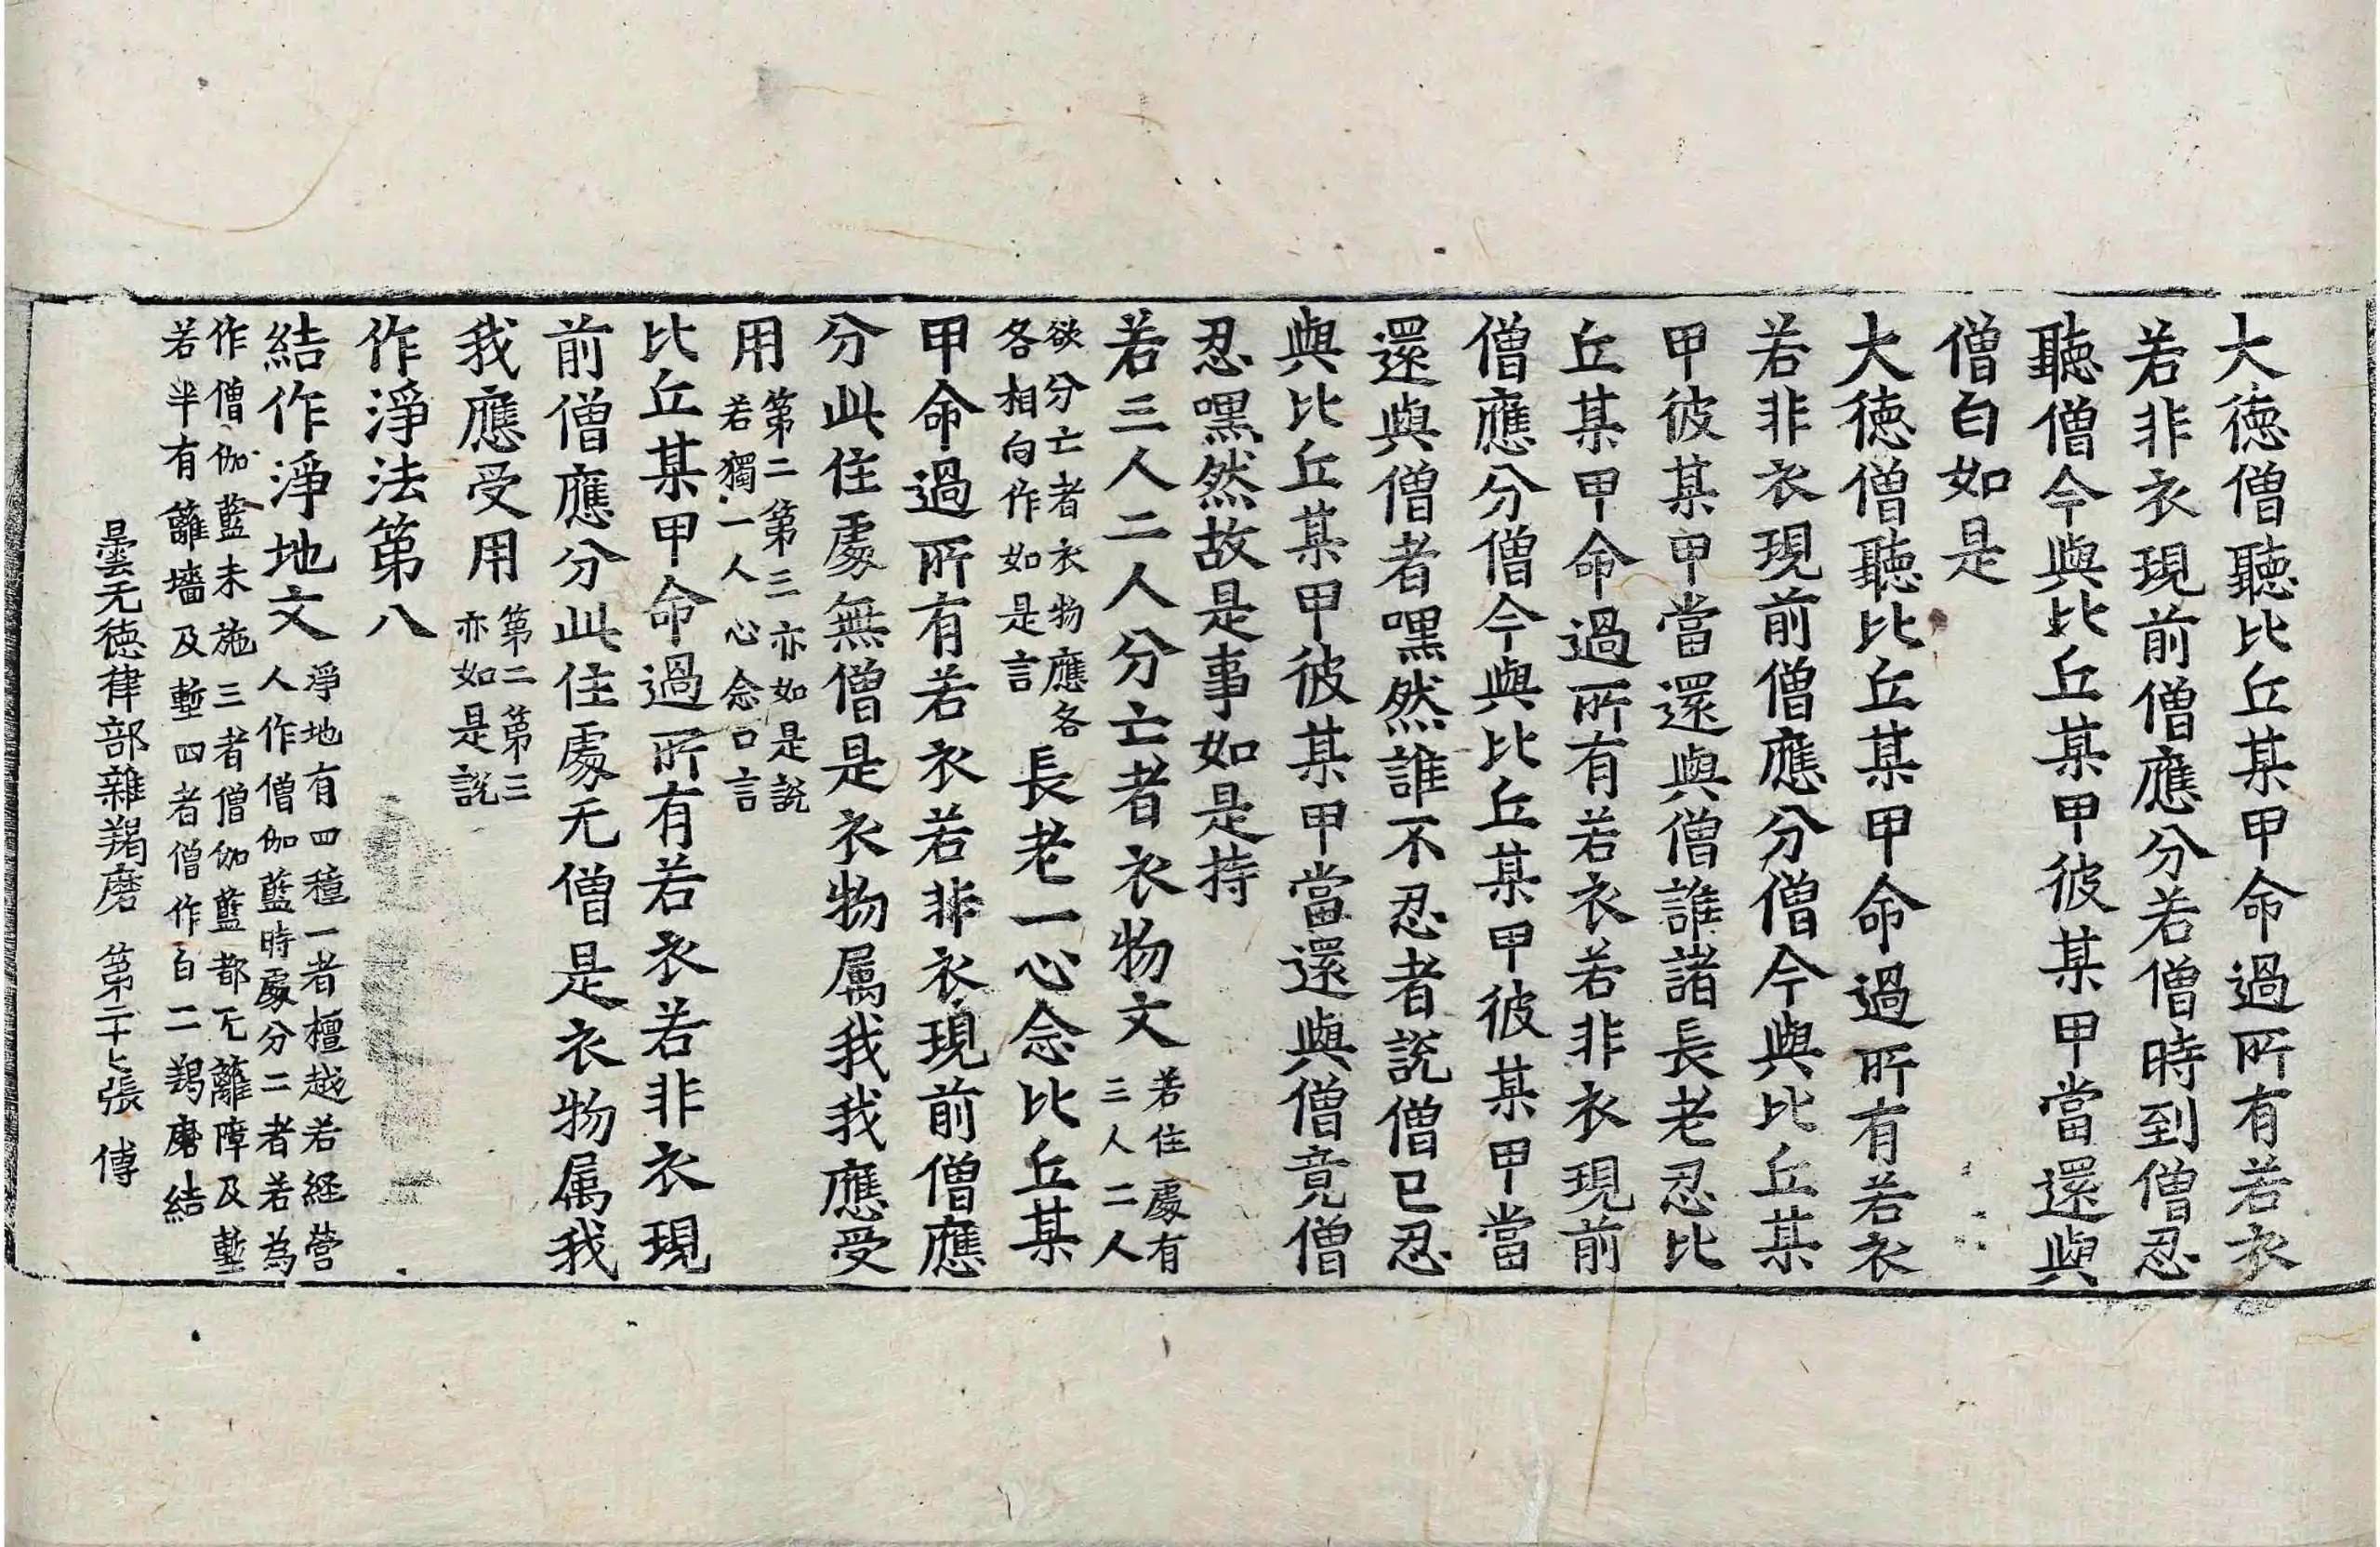 大德僧聽比丘某甲命過所有若衣
若非衣現前僧應分若僧時到僧忍
聽僧今與比丘某甲彼某甲當還與
僧白如是
大德僧聽比丘某甲命過所有若衣
若非衣現前僧應分僧今與比丘某
甲彼某甲當還與僧誰諸長老忍比
丘某甲命過所有若衣若非衣現前
僧應分僧今與比丘某甲彼某甲當
還與僧者嘿然誰不忍者說僧已忍
與比丘某甲彼某甲當還與僧竟僧
忍嘿然故是事如是持
若三人二人分亡者衣物文若住處有三人二人
欲分亡者衣物應各各相向作如是言長老一心念比丘某
甲命過所有若衣若非衣現前僧應
分此住處無僧是衣物属我我應受
用第二第三亦如是說若獨一人心念口言
比丘某甲命過所有若衣若非衣現
前僧應分此住處无僧是衣物属我
我應受用第二第三亦如是說
作淨法第八
結作淨地文淨地有四種一者檀越若経營人作僧伽藍時處分二者若為
作僧伽藍未施三者僧伽藍都无籬障及塹若半有籬墻及塹四者僧作白二羯磨結
曇无德律部雜羯磨 第二十七張 傅